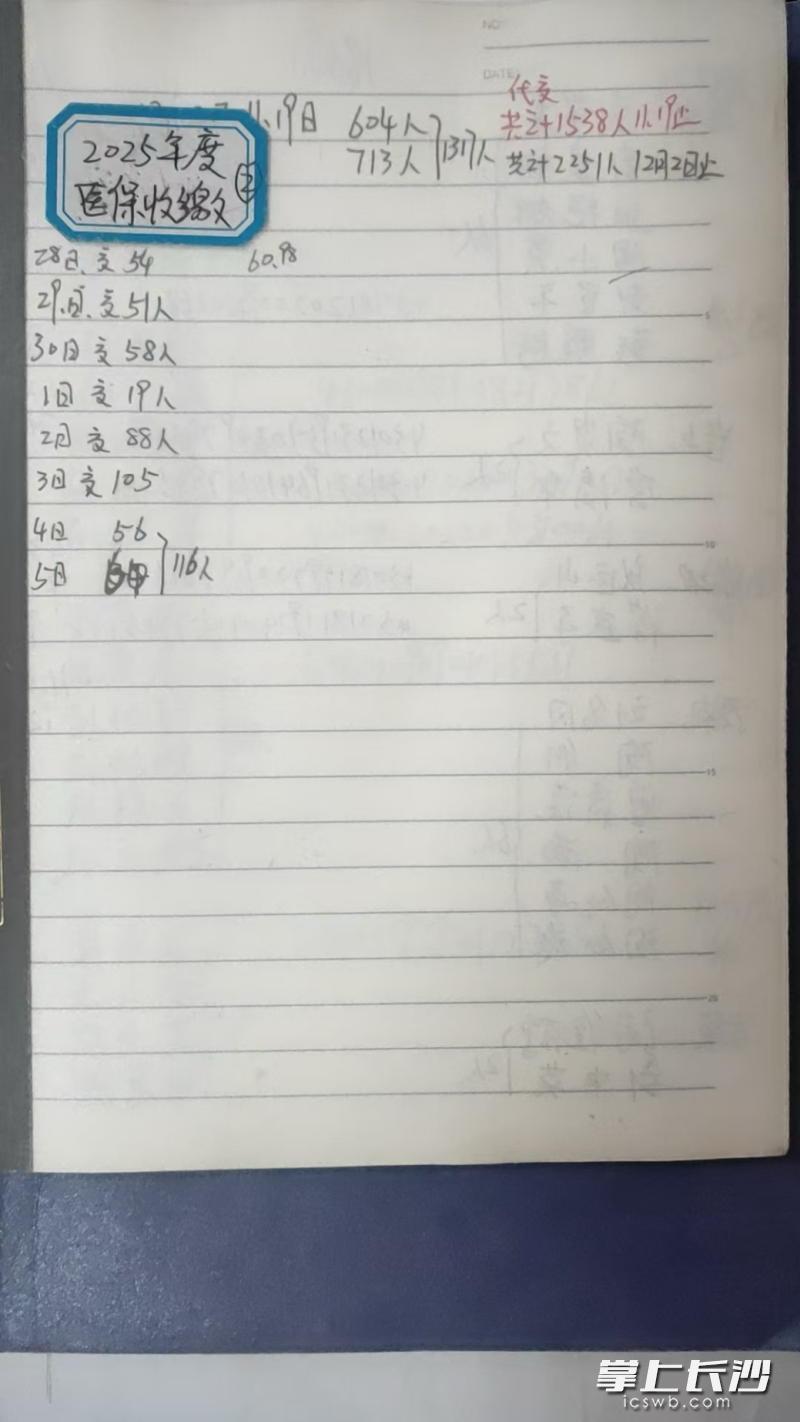 NO
DATE
11.19日 604人
713人
1317人
代交
共计1538人11.19止
共计2251人 12月2日止
2025年度
医保收缴 ②
28日.交 54 60.98
29.日.交 51人
30日 交 58人
1日 交 19人
2日 交 88人
3日 交 105
4日 56
5日
116人
5
10
15
20
掌上长沙
icswb.com